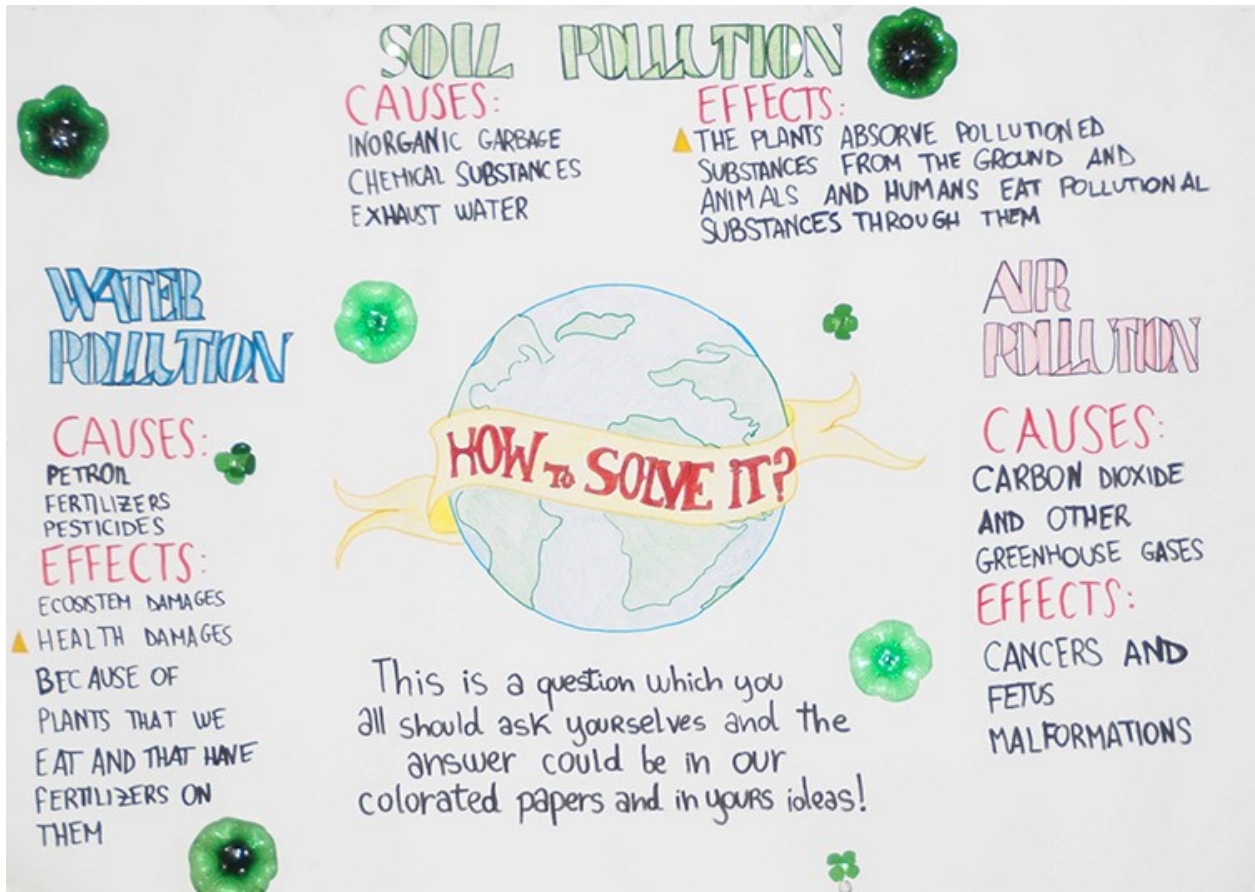 SOIL POLLUTION
CAUSES:
INORGANIC GARBAGE
CHEMICAL SUBSTANCES
EXHAUST WATER
EFFECTS:
THE PLANTS ABSORVE POLLUTIONED
SUBSTANCES FROM THE GROUND AND
ANIMALS AND HUMANS EAT POLLUTIONAL
SUBSTANCES THROUGH THEM
WATER
POLLUTION
CAUSES:
PETROIL
FERTILIZERS
PESTICIDES
EFFECTS:
ECOSISTEM DAMAGES
HEALTH DAMAGES
BECAUSE OF
PLANTS THAT WE
EAT AND THAT HAVE
FERTILIZERS ON
THEM
HOW TO SOLVE IT?
This is a question which you
all should ask yourselves and the
answer could be in our
colorated papers and in yours ideas!
AIR
POLLUTION
CAUSES:
CARBON DIOXIDE
AND OTHER
GREENHOUSE GASES
EFFECTS:
CANCERS AND
FETUS
MALFORMATIONS